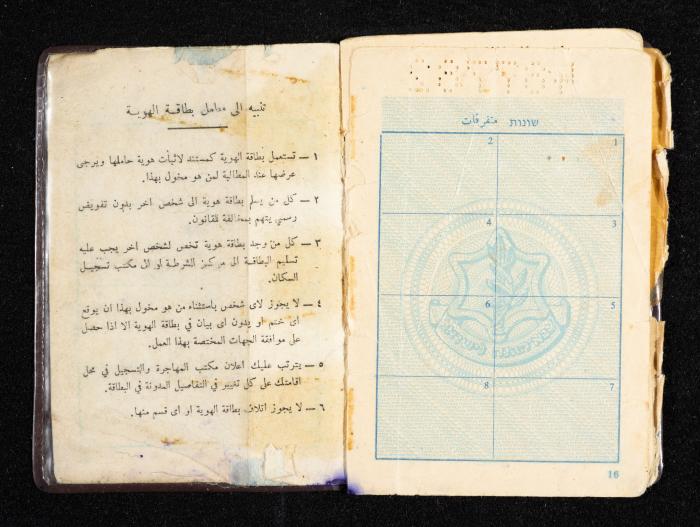 تنبيه الى حامل بطاقة الهوية
١ — تستعمل بطاقة الهوية كمستند لاثبات هوية حاملها ويرجى
عرضها عند المطالبة لمن هو مخول بهذا.
٢ — كل من يسلم بطاقة هوية الى شخص اخر بدون تفويض
رسمي يتهم بمخالفة للقانون.
٣ — كل من وجد بطاقة هوية تخص لشخص اخر يجب عليه
تسليم البطاقة الى مركز الشرطة او الى مكتب تسجيل
السكان.
٤ — لا يجوز لاى شخص باستثناء من هو مخول بهذا ان يوقع
اى ختم او يدون اى بيان في بطاقة الهوية الا اذا حصل
على موافقة الجهات المختصة بهذا العمل.
٥ — يترتب عليك اعلان مكتب المهاجرة والتسجيل في محل
اقامتك على كل تغيير في التفاصيل المدونة في البطاقة.
٦ — لا يجوز اتلاف بطاقة الهوية او اى قسم منها.
שונות متفرقات
2 1
4 3
6 5
8 7
16